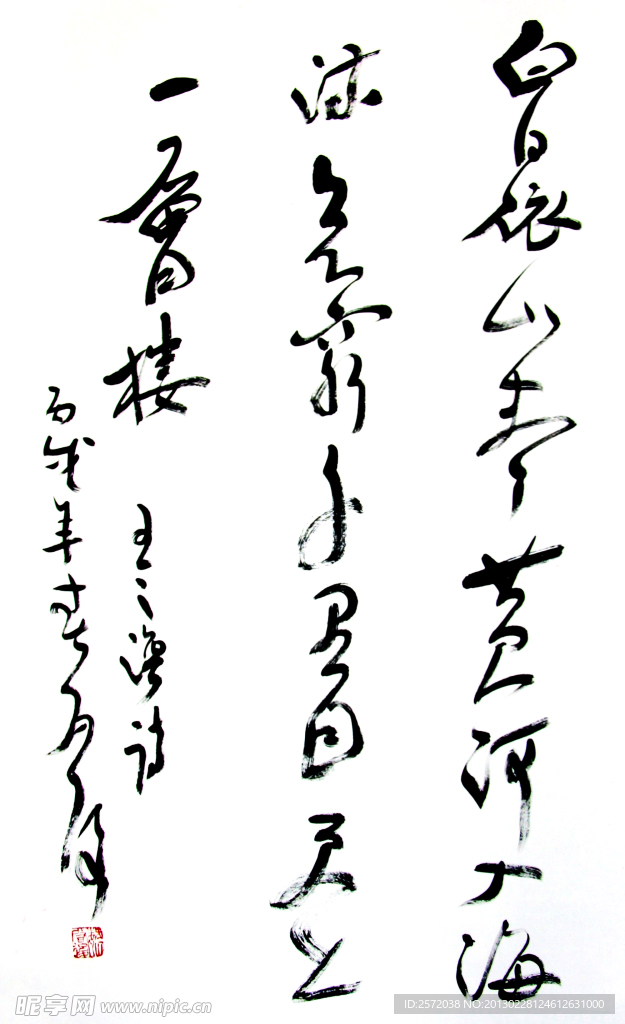 白日依山盡黄河入海
流欲窮千里目更上
一層樓
王之渙詩
丙戌年春
昵享网 www.nipic.cn
ID:2572038 NO:20130228124612631000